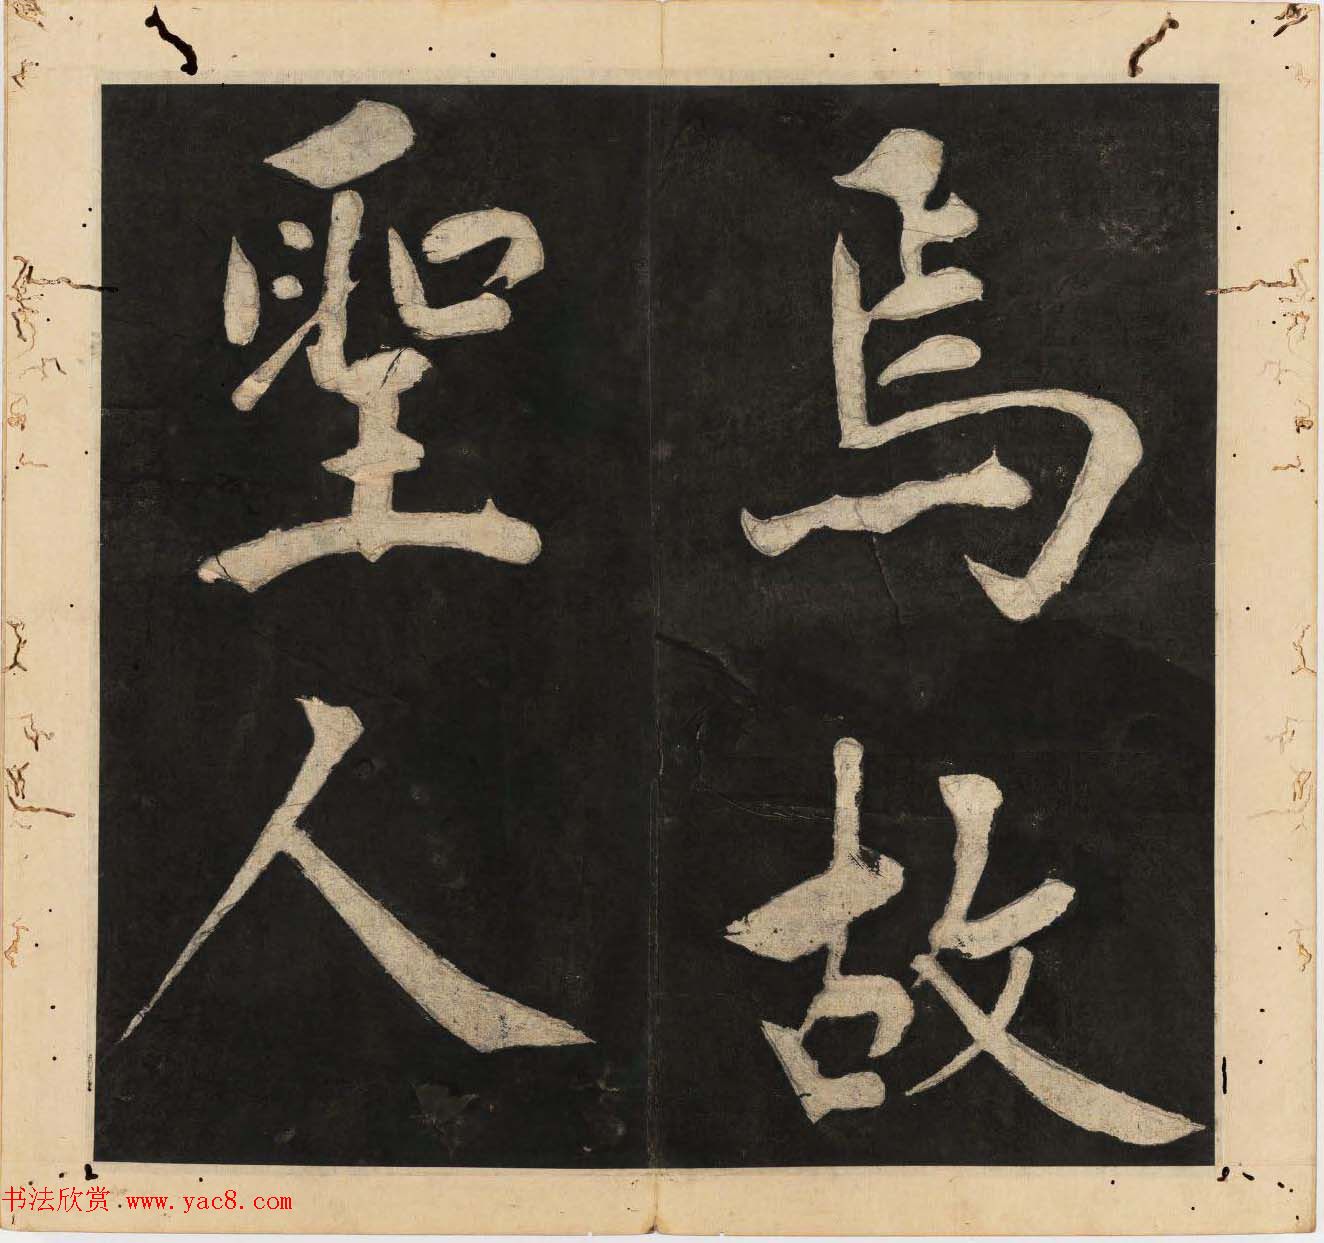 焉故
聖人
书法欣赏 www.yac8.com